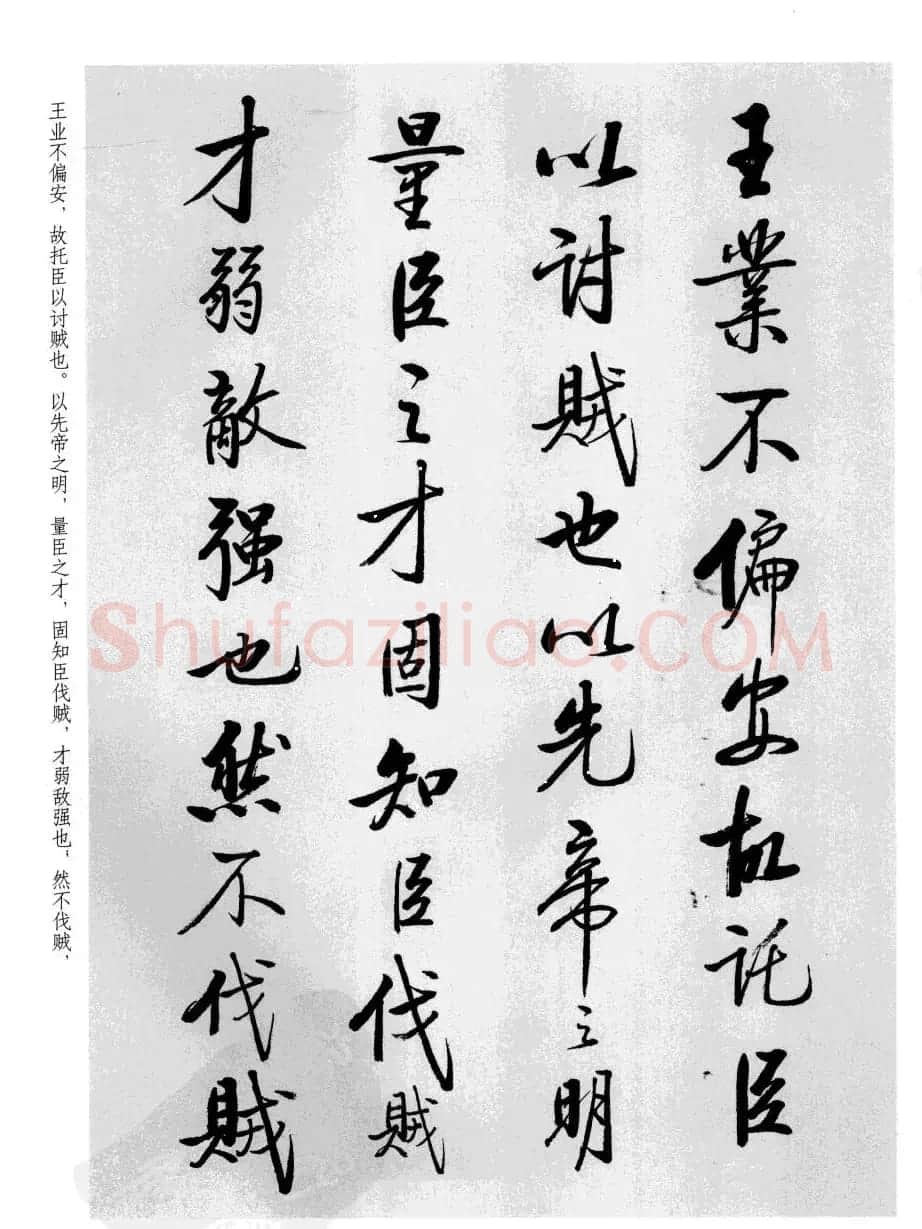 王業不偏安故託臣
以討賊也以先帝之明
量臣之才固知臣伐賊
才弱敵强也然不伐賊
王业不偏安，故托臣以讨贼也。以先帝之明，量臣之才，固知臣伐贼，才弱敌强也；然不伐贼，
Shufaziliao.COM